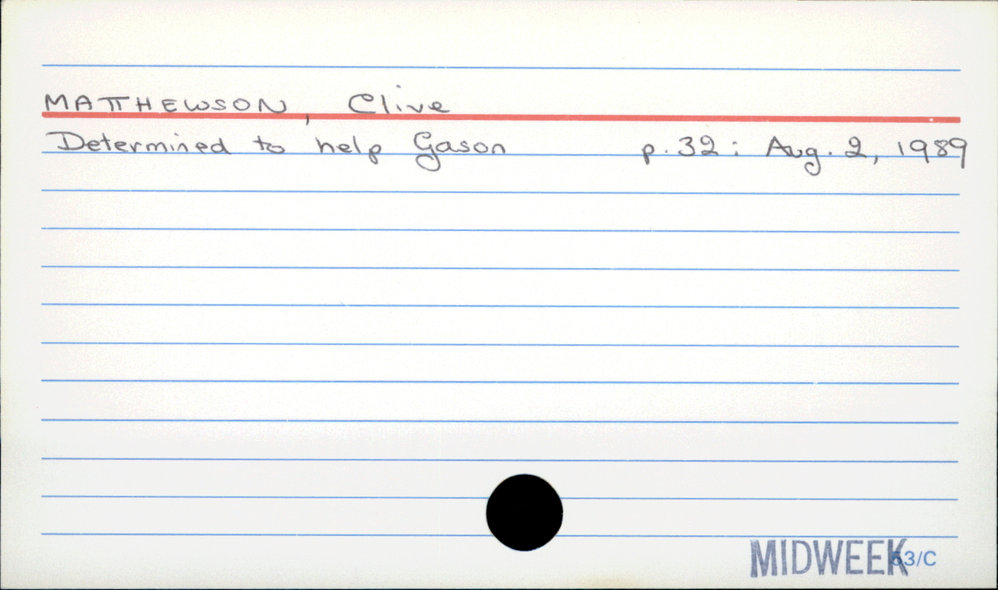 MATTHEWSON, Clive
Determined to help Gason p.32: Aug. 2, 1989
MIDWEEK
63/C